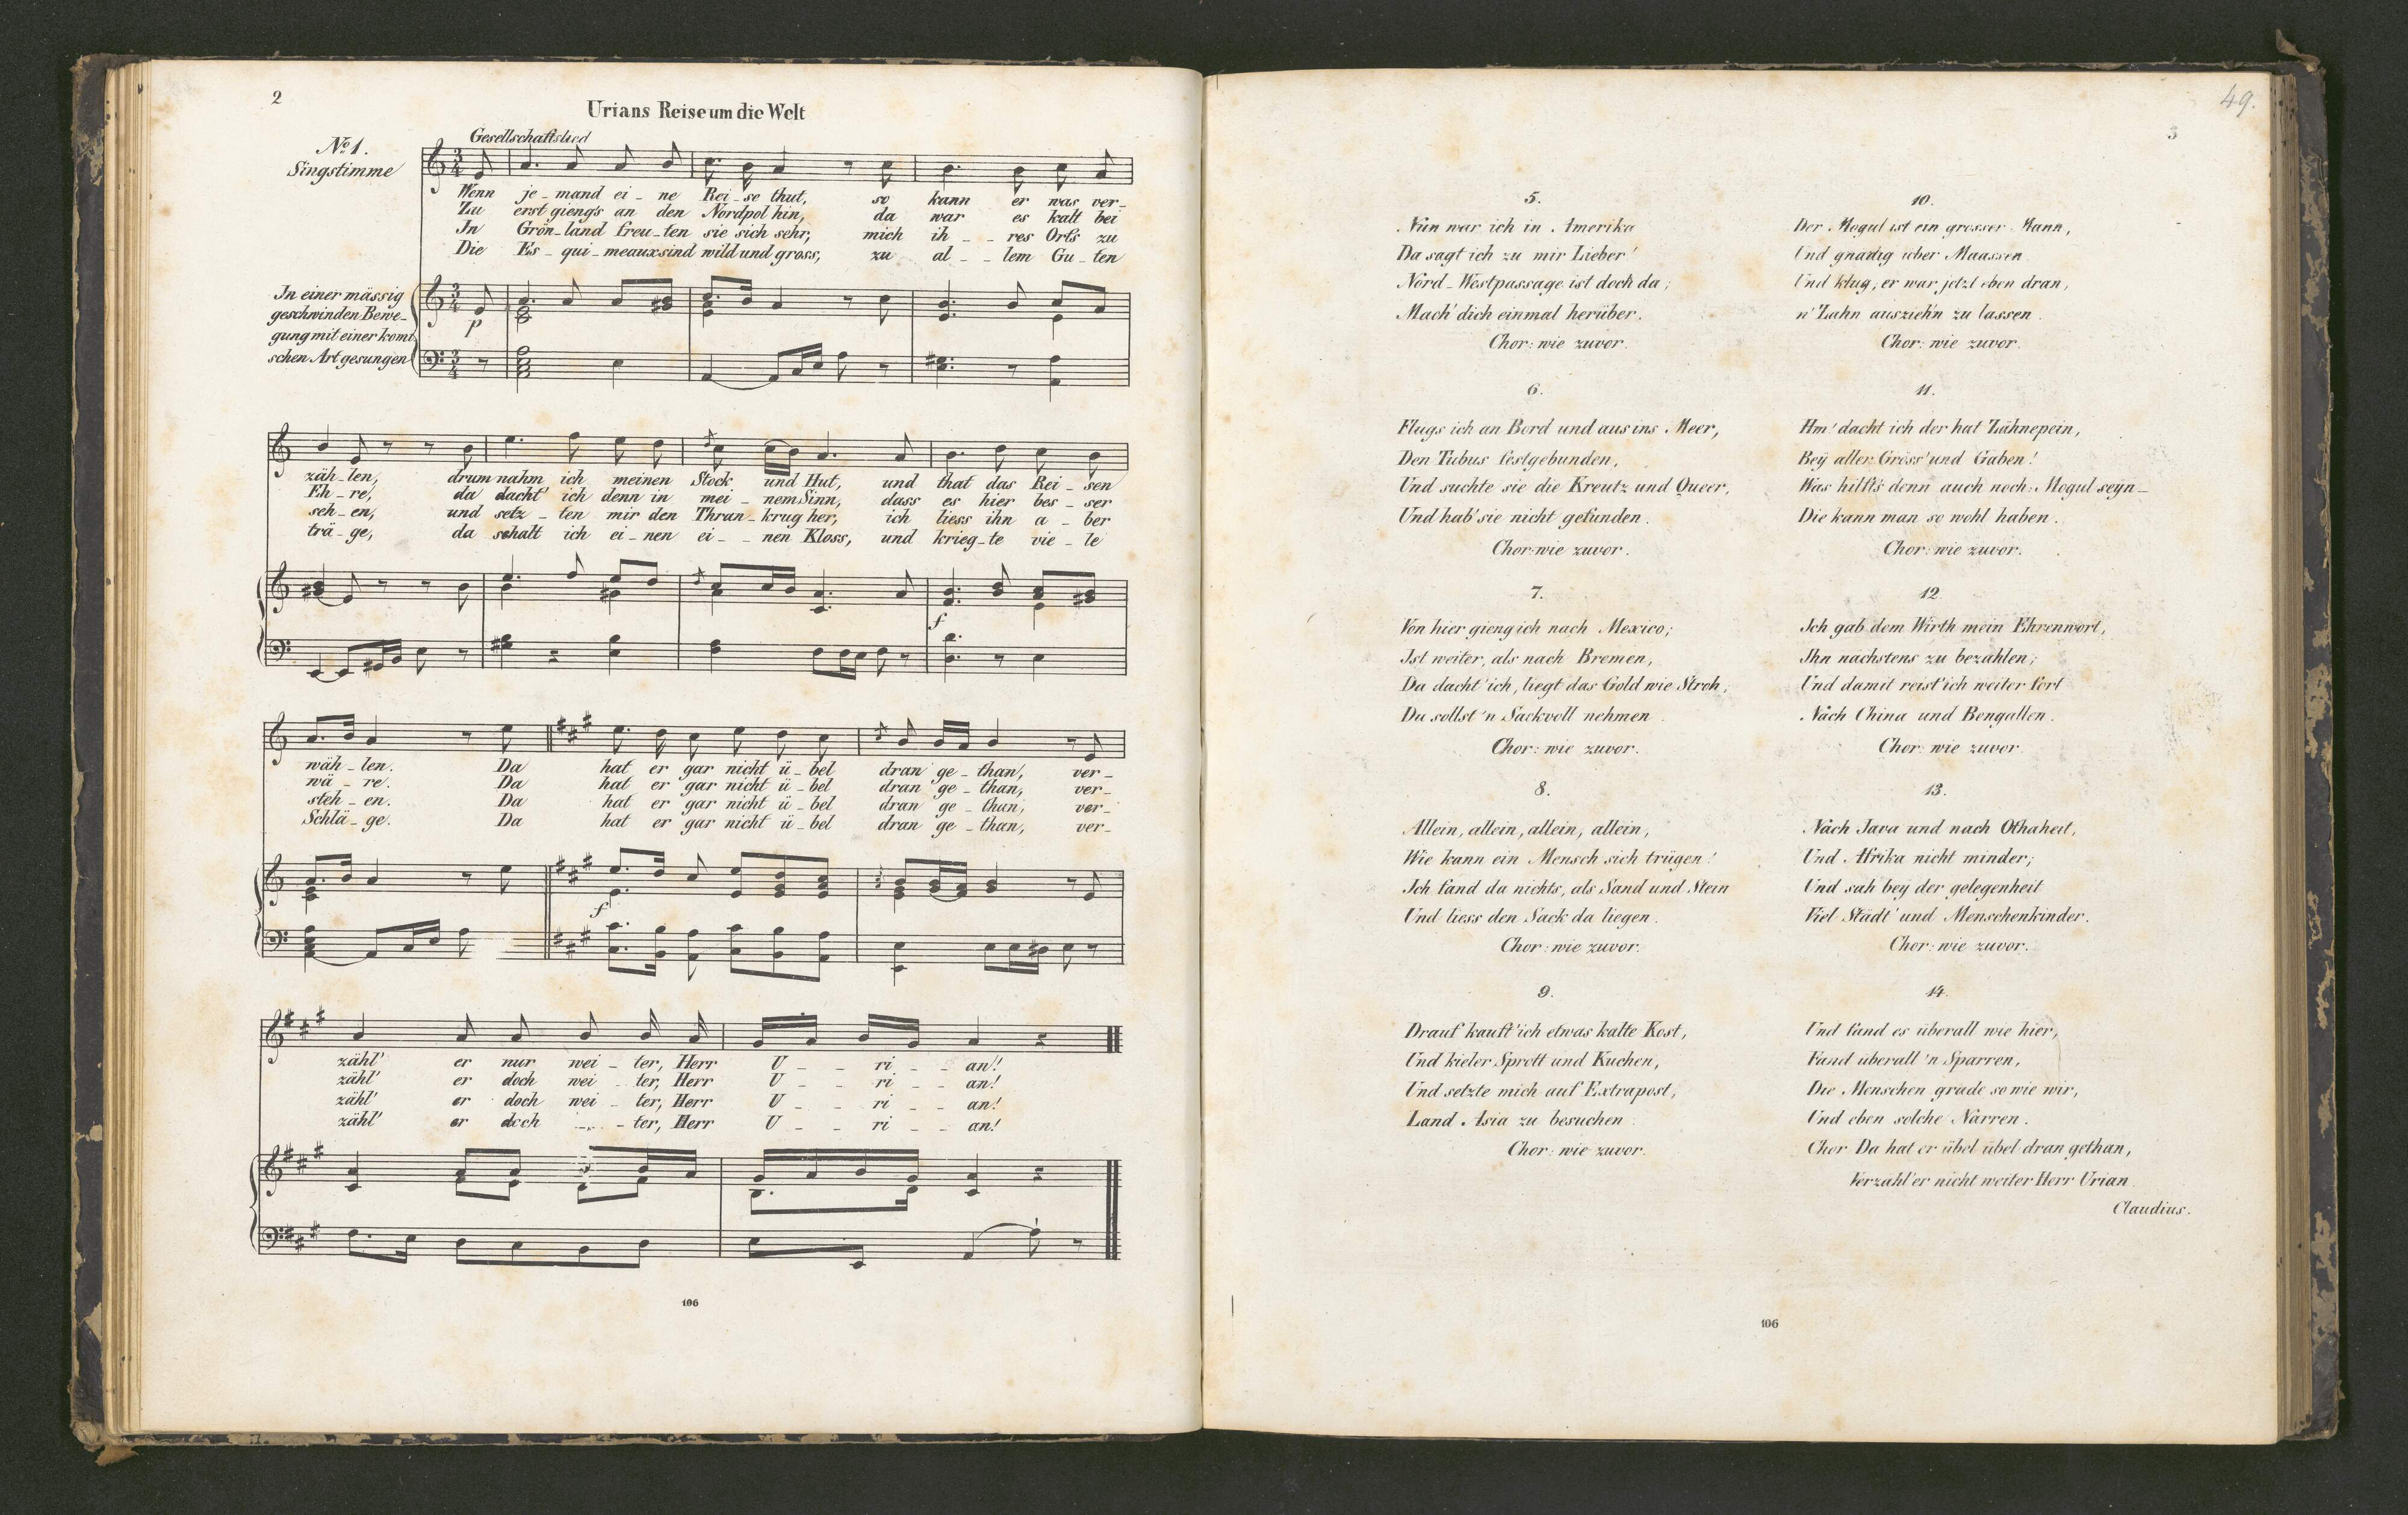 2
Urians Reise um die Welt
Gesellschaftslied
No. 1.
Singstimme
Wenn je_mand ei_ne Rei_se thut, so kann er was ver_
Zu erst gieng's an den Nordpol hin, da war es kalt bei
In Grön_land freu_ten sie sich sehr, mich ih_ _res Orts zu
Die Es_qui_meaux sind wild und gross, zu al_ _lem Gu_ten
In einer mässig
geschwinden Bewe_
gung mit einer komi
schen Art gesungen
p
zäh_len, drum nahm ich meinen Stock und Hut, und that das Rei_sen
Eh_re, da dacht' ich denn in mei_nem Sinn, dass es hier bes_ser
seh_en, und setz_ten mir den Thran_krug her, ich liess ihn a_ber
trä_ge, da schalt ich ei_nen ei_ _nen Kloss, und krieg_te vie_le
f
wäh_len. Da hat er gar nicht ü_bel dran ge_than, ver_
wä_re. Da hat er gar nicht ü_bel dran ge_than, ver_
steh_en. Da hat er gar nicht ü_bel dran ge_than, ver_
Schlä_ge. Da hat er gar nicht ü_bel dran ge_than, ver_
f
zähl' er nur wei_ter, Herr U_ _ _ri_ _ _an!
zähl' er doch wei_ter, Herr U_ _ _ri_ _ _an!
zähl' er doch wei_ter, Herr U_ _ _ri_ _ _an!
zähl' er doch _ter, Herr U_ _ _ri_ _ _an!
106
49.
3
5.
Nun war ich in Amerika
Da sagt ich zu mir Lieber!
Nord_Westpassage ist doch da;
Mach' dich einmal herüber.
Chor: wie zuvor.
6.
Flugs ich an Bord und aus ins Meer,
Den Tubus festgebunden,
Und suchte sie die Kreutz und Queer,
Und hab' sie nicht gefunden.
Chor: wie zuvor.
7.
Von hier gieng ich nach Mexico;
Ist weiter, als nach Bremen,
Da dacht' ich, liegt das Gold wie Stroh;
Du sollst 'n Sackvoll nehmen.
Chor: wie zuvor.
8.
Allein, allein, allein, allein,
Wie kann ein Mensch sich trügen!
Ich fand da nichts, als Sand und Stein
Und liess den Sack da liegen.
Chor: wie zuvor.
9.
Drauf kauft' ich etwas kalte Kost,
Und kieler Sprott und Kuchen,
Und setzte mich auf Extrapost,
Land Asia zu besuchen
Chor: wie zuvor.
10.
Der Mogul ist ein grosser Mann,
Und gnädig über Maassen
Und klug; er war jetzt eben dran,
n' Zahn auszieh'n zu lassen.
Chor: wie zuvor.
11.
Hm! dacht ich der hat Zähnepein,
Bey aller Gröss' und Gaben!
Was hilft's denn auch noch: Mogul seyn_
Die kann man so wohl haben.
Chor: wie zuvor.
12.
Ich gab dem Wirth mein Ehrenwort,
Ihn nächstens zu bezahlen;
Und damit reist' ich weiter fort
Nach China und Bengallen.
Chor: wie zuvor
13.
Nach Java und nach Othaheit,
Und Afrika nicht minder;
Und sah bey der gelegenheit
Viel Städt' und Menschenkinder.
Chor: wie zuvor.
14.
Und fand es überall wie hier,
Fand überall 'n Sparren,
Die Menschen grade so wie wir,
Und eben solche Narren.
Chor Da hat er übel übel dran gethan,
Verzähl' er nicht weiter Herr Urian.
Claudius.
106